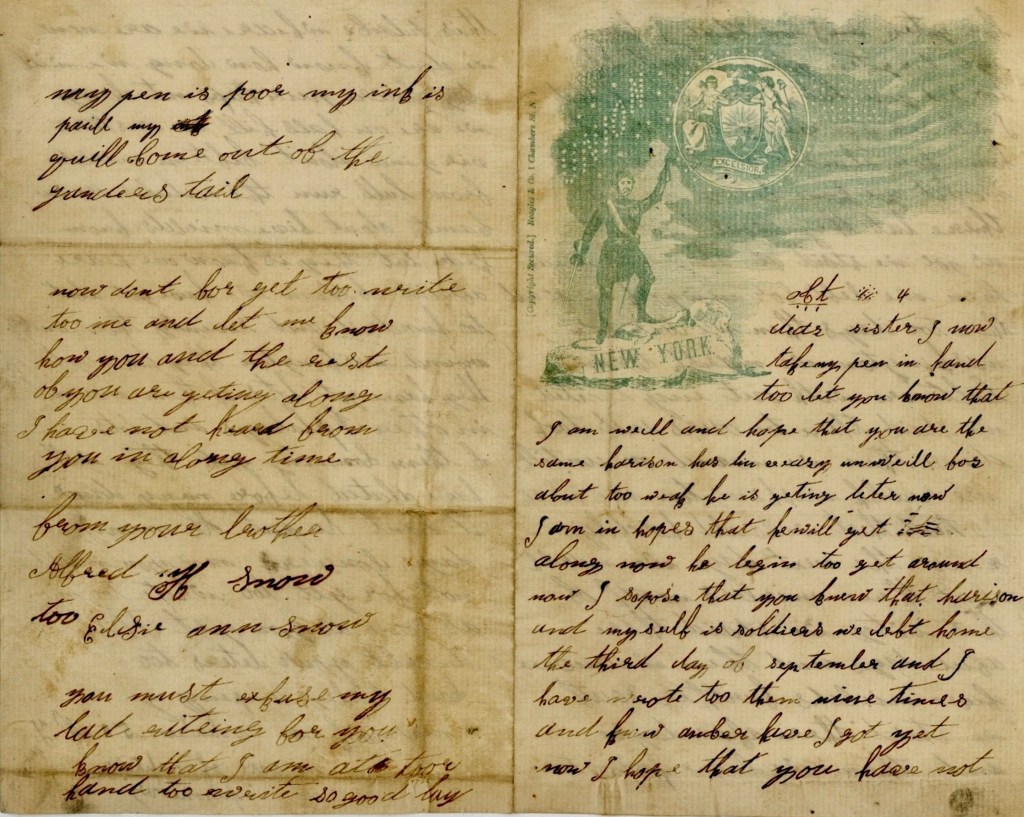 my pen is poor my ink is
paill my
quill Come out of the
yanders tail
now dont for get too write
too me and let me know
how you and the rest
of you are geting along
I have not heard from
you in along time
from your brother
Alfred H Snow
too Elsie ann Snow
you must exfuse my
bad riteing for you
know that I am at poor
hand too write so good by
EXCELSIOR
(Copyright Secured.) Douglas & Co. 1 Chambers St. N.Y.
NEW YORK
Oct 4
dear sister I now
take my pen in hand
too let you know that
I am weill and hope that you are the
same harison has bin veary unweill for
abut too weaks he is geting beter now
I am in hopes that he will get
along now he begin too get around
now I sopose that you knew that harison
and my self is soldiers we left home
the third day of september and I
have wrote too them nine times
and know anber have I got yet
now I hope that you have not